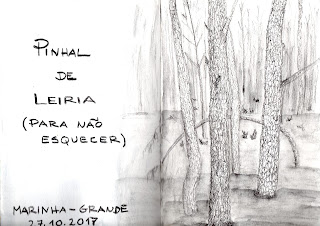 PINHAL
DE
LEIRIA
(PARA NÃO
ESQUECER)
MARINHA-GRANDE
27.10.2017